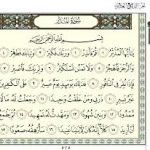 سُورَةُ المُدَّثِّر
بِسْمِ اللَّهِ الرَّحْمَٰنِ الرَّحِيمِ
يَٰٓأَيُّهَا الْمُدَّثِّرُ ١ قُمْ فَأَنذِرْ ٢ وَرَبَّكَ فَكَبِّرْ ٣ وَثِيَابَكَ فَطَهِّرْ ٤
وَالرُّجْزَ فَاهْجُرْ ٥ وَلَا تَمْنُن تَسْتَكْثِرُ ٦ وَلِرَبِّكَ فَاصْبِرْ ٧ فَإِذَا نُقِرَ
فِي النَّاقُورِ ٨ فَذَٰلِكَ يَوْمَئِذٍ يَوْمٌ عَسِيرٌ ٩ عَلَى الْكَٰفِرِينَ غَيْرُ
يَسِيرٍ ١٠ ذَرْنِي وَمَنْ خَلَقْتُ وَحِيدًا ١١ وَجَعَلْتُ لَهُ مَالًا
مَّمْدُودًا ١٢ وَبَنِينَ شُهُودًا ١٣ وَمَهَّدتُّ لَهُ تَمْهِيدًا ١٤ ثُمَّ يَطْمَعُ
أَنْ أَزِيدَ ١٥ كَلَّا إِنَّهُ كَانَ لِآيَٰتِنَا عَنِيدًا ١٦ سَأُرْهِقُهُ صَعُودًا ١٧